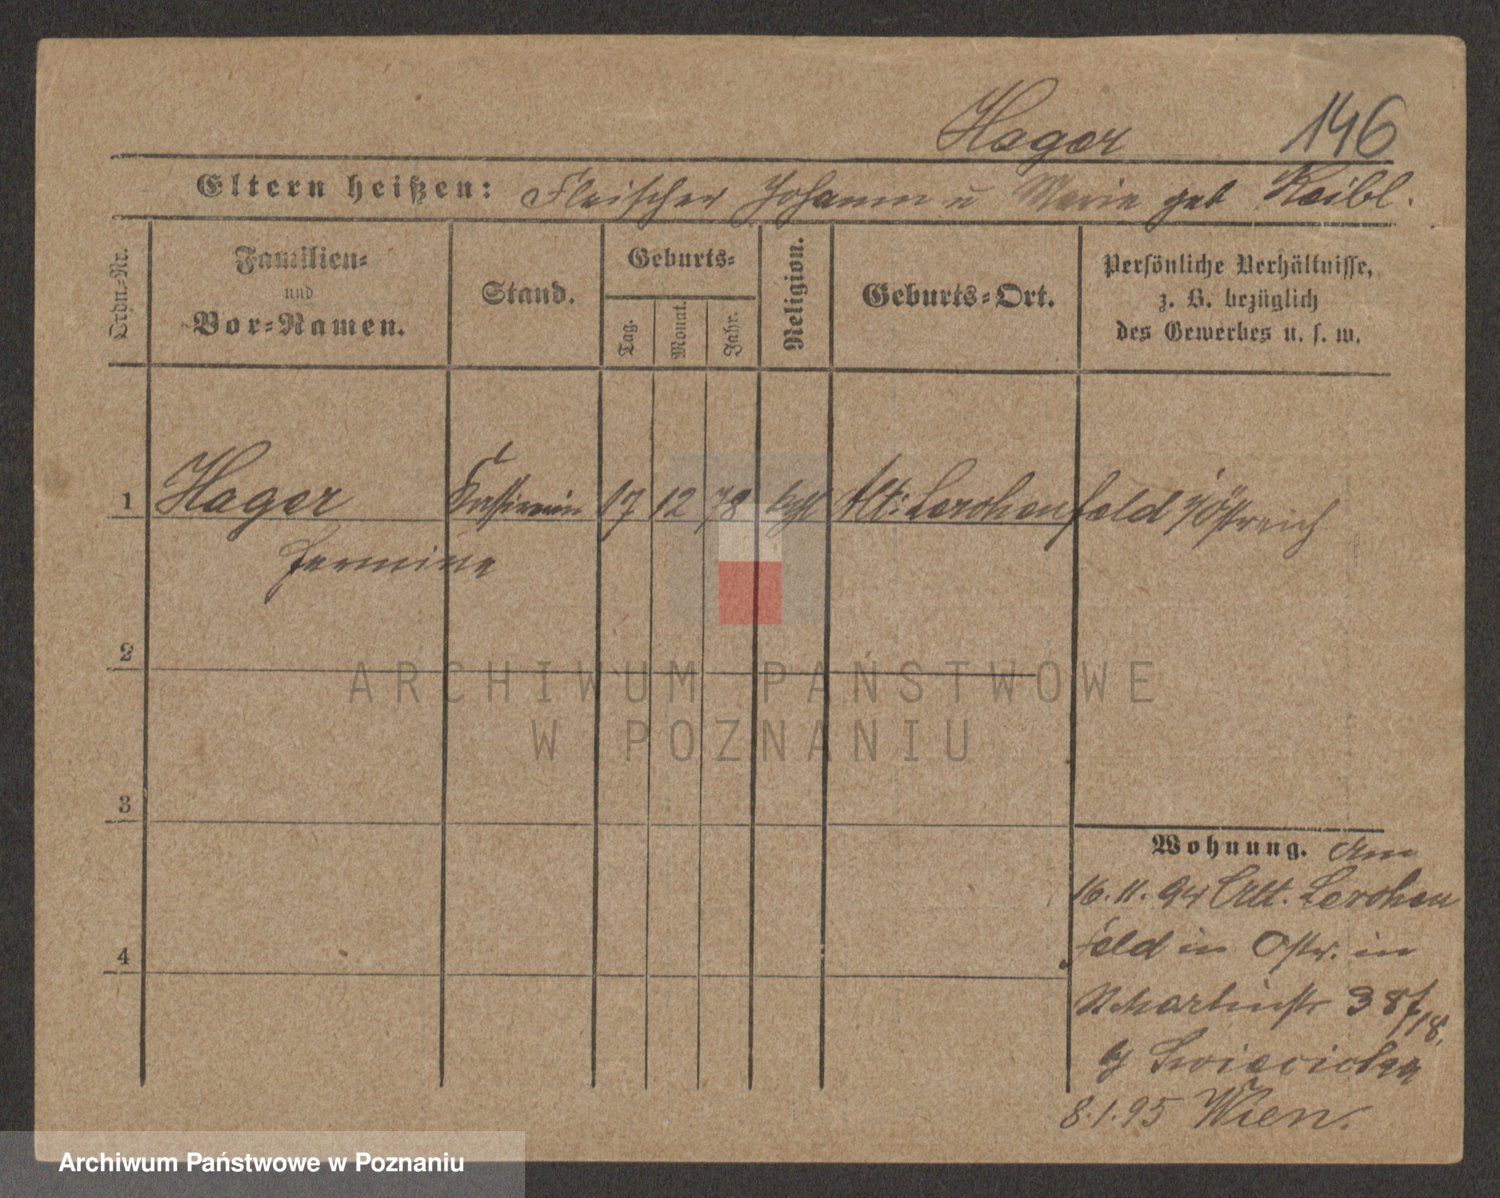 Hager 146
Eltern heißen: Fleischer Johann u Marie geb Keibl.
Ordn.-Nr.
Familien-
und
Vor-Namen.
Stand.
Geburts-
Tag.
Monat.
Jahr.
Religion.
Geburts-Ort.
Persönliche Verhältnisse,
z. B. bezüglich
des Gewerbes u. s. w.
1 Hager 17 12 78 Alt: Lerchenfeld Östreich
Hermine
2
3
4
Wohnung. Am
16. 11. 94 Alt. Lerchen
feld in Ostr. in
38
18.
8. 1. 95 Wien.
ARCHIWUM PAŃSTWOWE
W POZNANIU
Archiwum Państwowe w Poznaniu